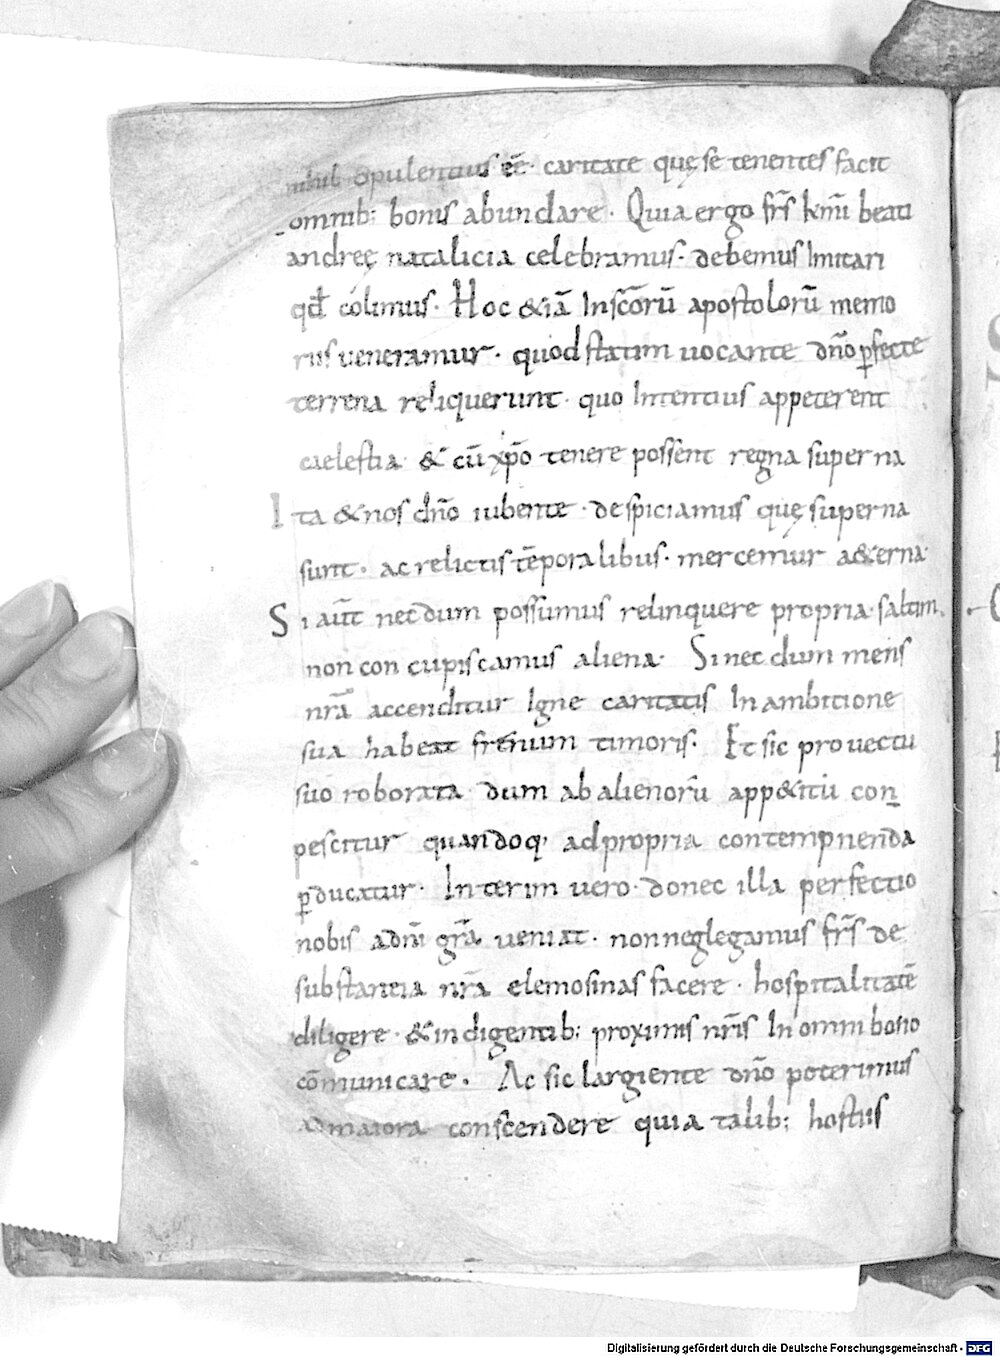 nihil opulentius eē· caritate quę se tenentes facit
omnib; bonis abundare· Quia ergo frs̄ kmī beati
andreę natalicia celebramus· debemus Imitari
qđ colimus· Hoc &iā In sc̄orū apostolorū memo
riis ueneramur· quod statim uocante dn̄o ꝑfecte
terrena reliquerunt· quo Intentius appeterent
caelestia & cū xp̄o tenere possent regna superna
Ita & nos dn̄o iubente· despiciamus quę superna
sunt· ac relictis tēporalibus· mercemur a&erna·
Si aūt necdum possumus relinquere propria· saltim
non concupiscamus aliena· Si nec dum mens
nr̄a accenditur Igne caritatis In ambitione
sua habeat frenum timoris· Et sic prouectu
suo roborata dum ab alienorū app&itu con
pescitur quandoq; ad propria contempnenda
ꝑducatur· Interim uero· donec illa perfectio
nobis ad nī gr̄a ueniat· non neglegamus frs̄ de
substantia nr̄a elemosinas facere· hospitalitatē
diligere· & indigentib; proximis nr̄is In omni bono
cōmunicare. Ac sic largiente dn̄o poterimus
ad maiora conscendere quia talib; hostiis
Digitalisierung gefördert durch die Deutsche Forschungsgemeinschaft - DFG